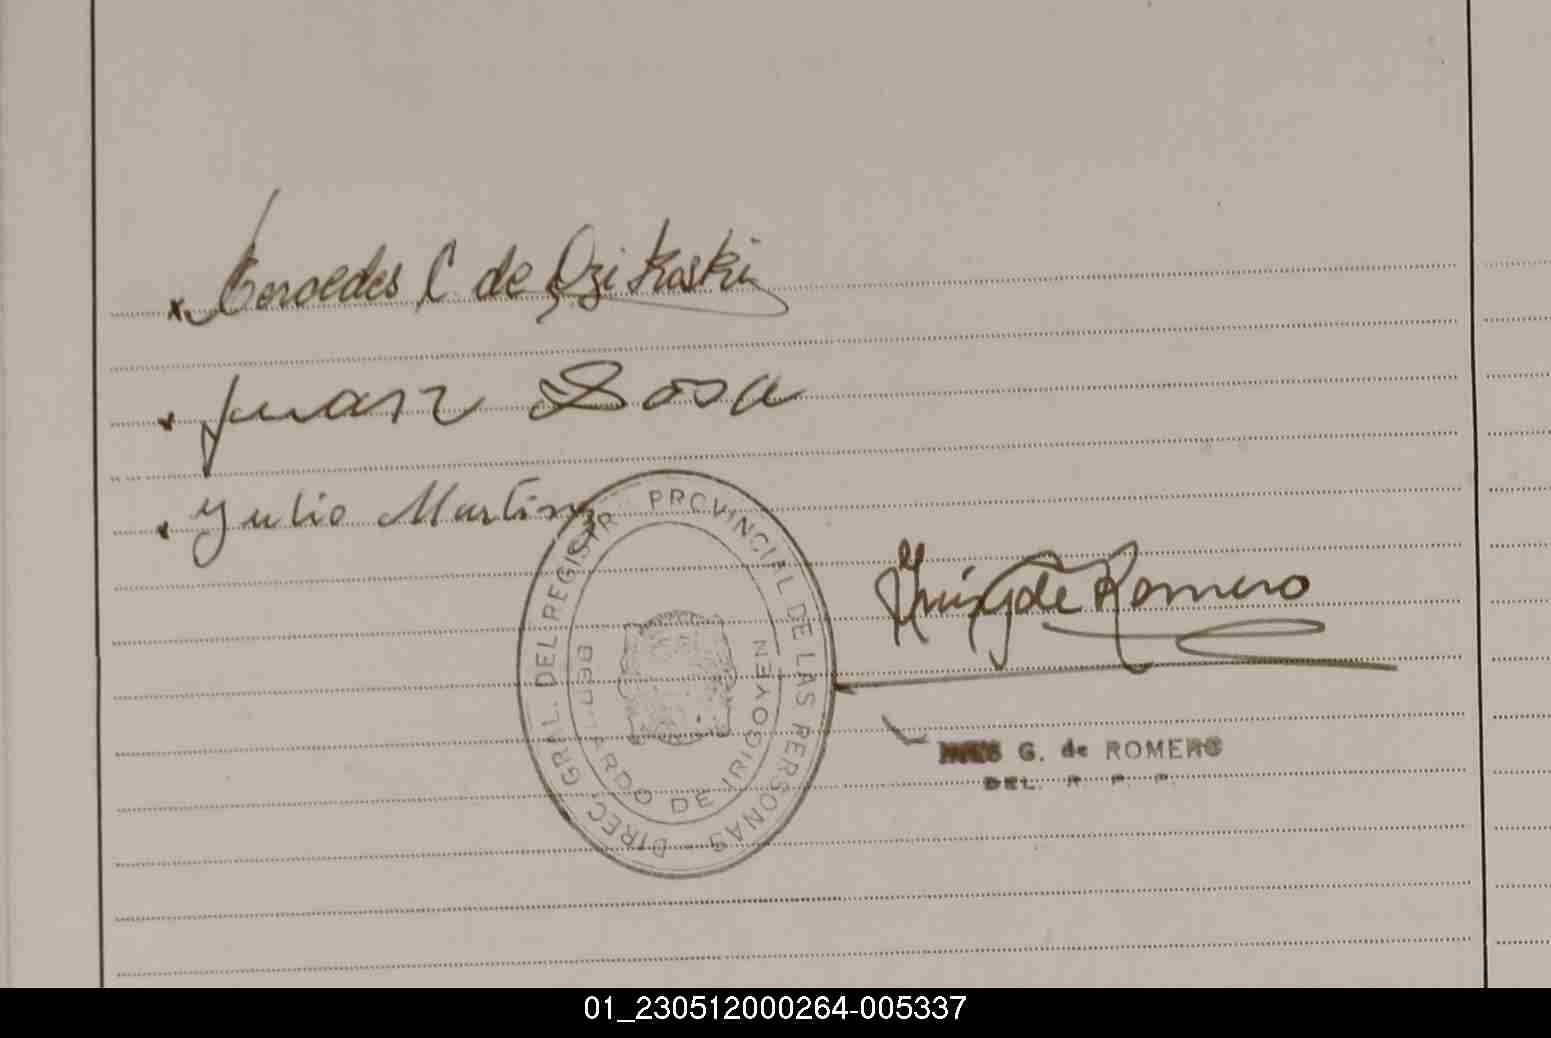 Mercedes C de Dzikoski
Juan Sosa
Julio Martinez
DIREC. GRAL. DEL REGISTR PROVINCIAL DE LAS PERSONAS -
BERNARDO DE IRIGOYEN
Inés G de Romero
INES G. de ROMERO
DEL. R. P. P.
01_230512000264-005337